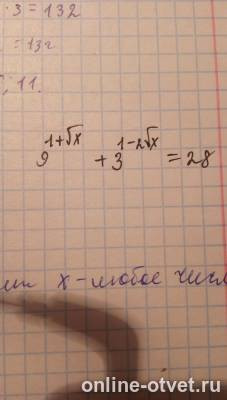 · 3 = 132
= 132
; 11.
9^{1+√x} + 3^{1-2√x} = 28
x - любое
online-otvet.ru